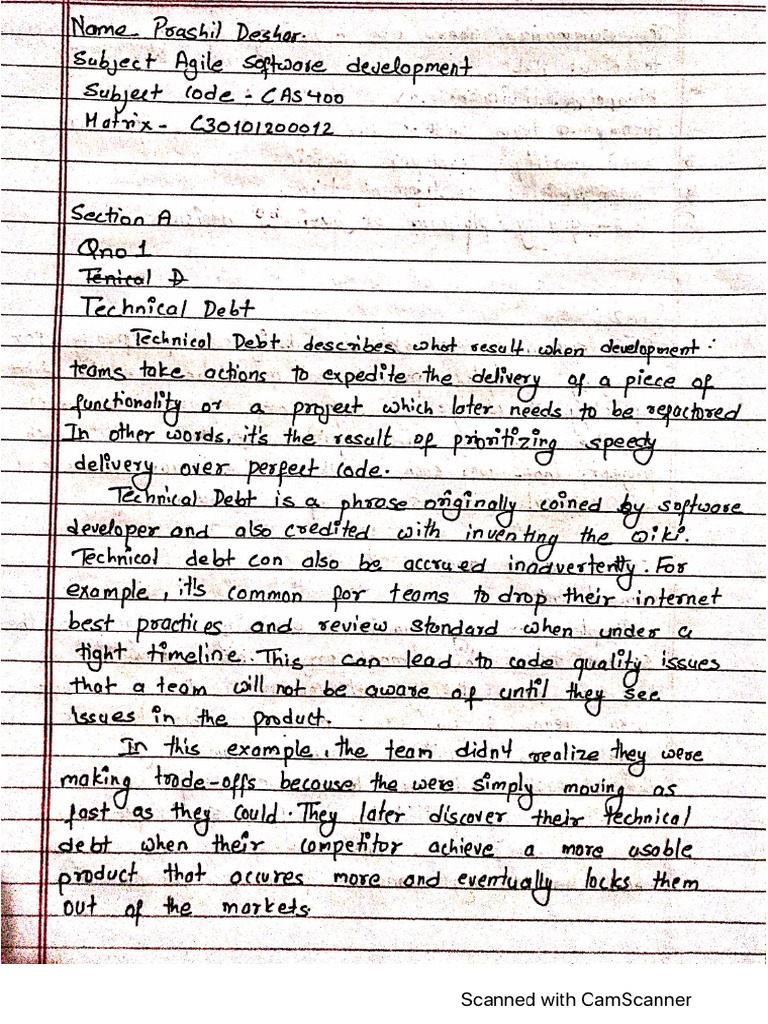 Name - Prashil Deshar.
Subject Agile Software development
Subject code - CAS400
Matrix - C30101200012
Section A
Qno 1
Tenical D
Technical Debt
Technical Debt describes what result when development
teams take actions to expedite the delivery of a piece of
functionality or a project which later needs to be refactored
In other words, it's the result of prioritizing speedy
delivery over perfect code.
Technical Debt is a phrase originally coined by software
developer and also credited with inventing the wiki.
Technical debt can also be accrued inadvertently. For
example, it's common for teams to drop their internet
best practices and review standard when under a
tight timeline. This can lead to code quality issues
that a team will not be aware of until they see
issues in the product.
In this example, the team didn't realize they were
making trade-offs because the were simply moving as
fast as they could. They later discover their technical
debt when their competitor achieve a more usable
product that occures more and eventually locks them
out of the markets.
Scanned with CamScanner